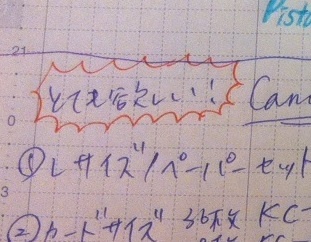 Pisto
21
とても欲しい!! Can
0
①Lサイズ/ペーパーセット
3
②カードサイズ 36枚 KC-
KC-